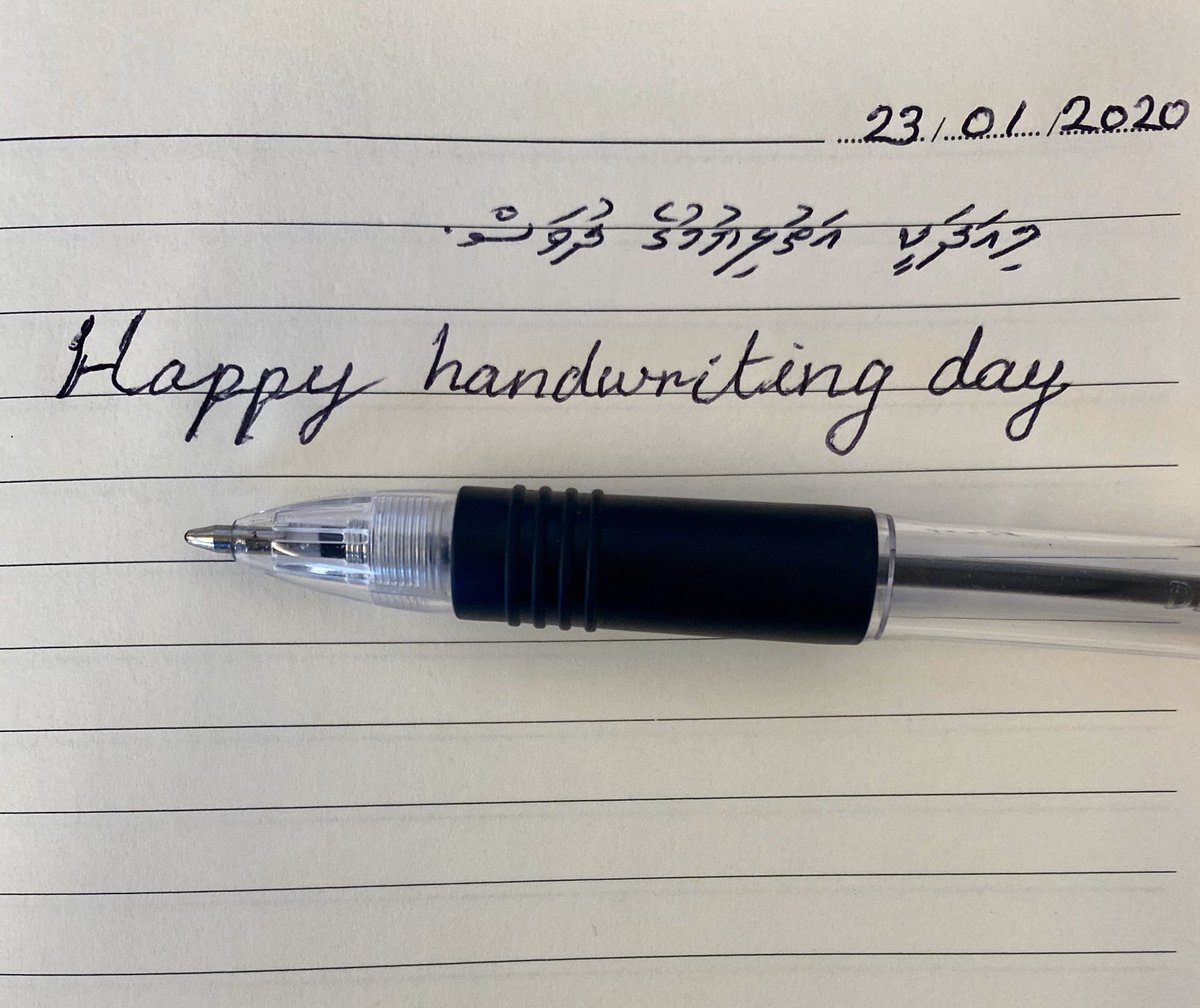 23/01/2020
މިއަދަކީ އަތުލިޔުމުގެ ދުވަސް.
Happy handwriting day